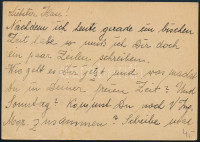 Liebster Hans!
Nachdem ich heute gerade ein bischen
Zeit habe so muss ich Dir doch
ein paar Zeilen schreiben.
Wie geht es Dir jetzt und was machst
du in deiner freien Zeit? Und
Sonntag? Kommst Du noch V.
zusammen? Schreibe